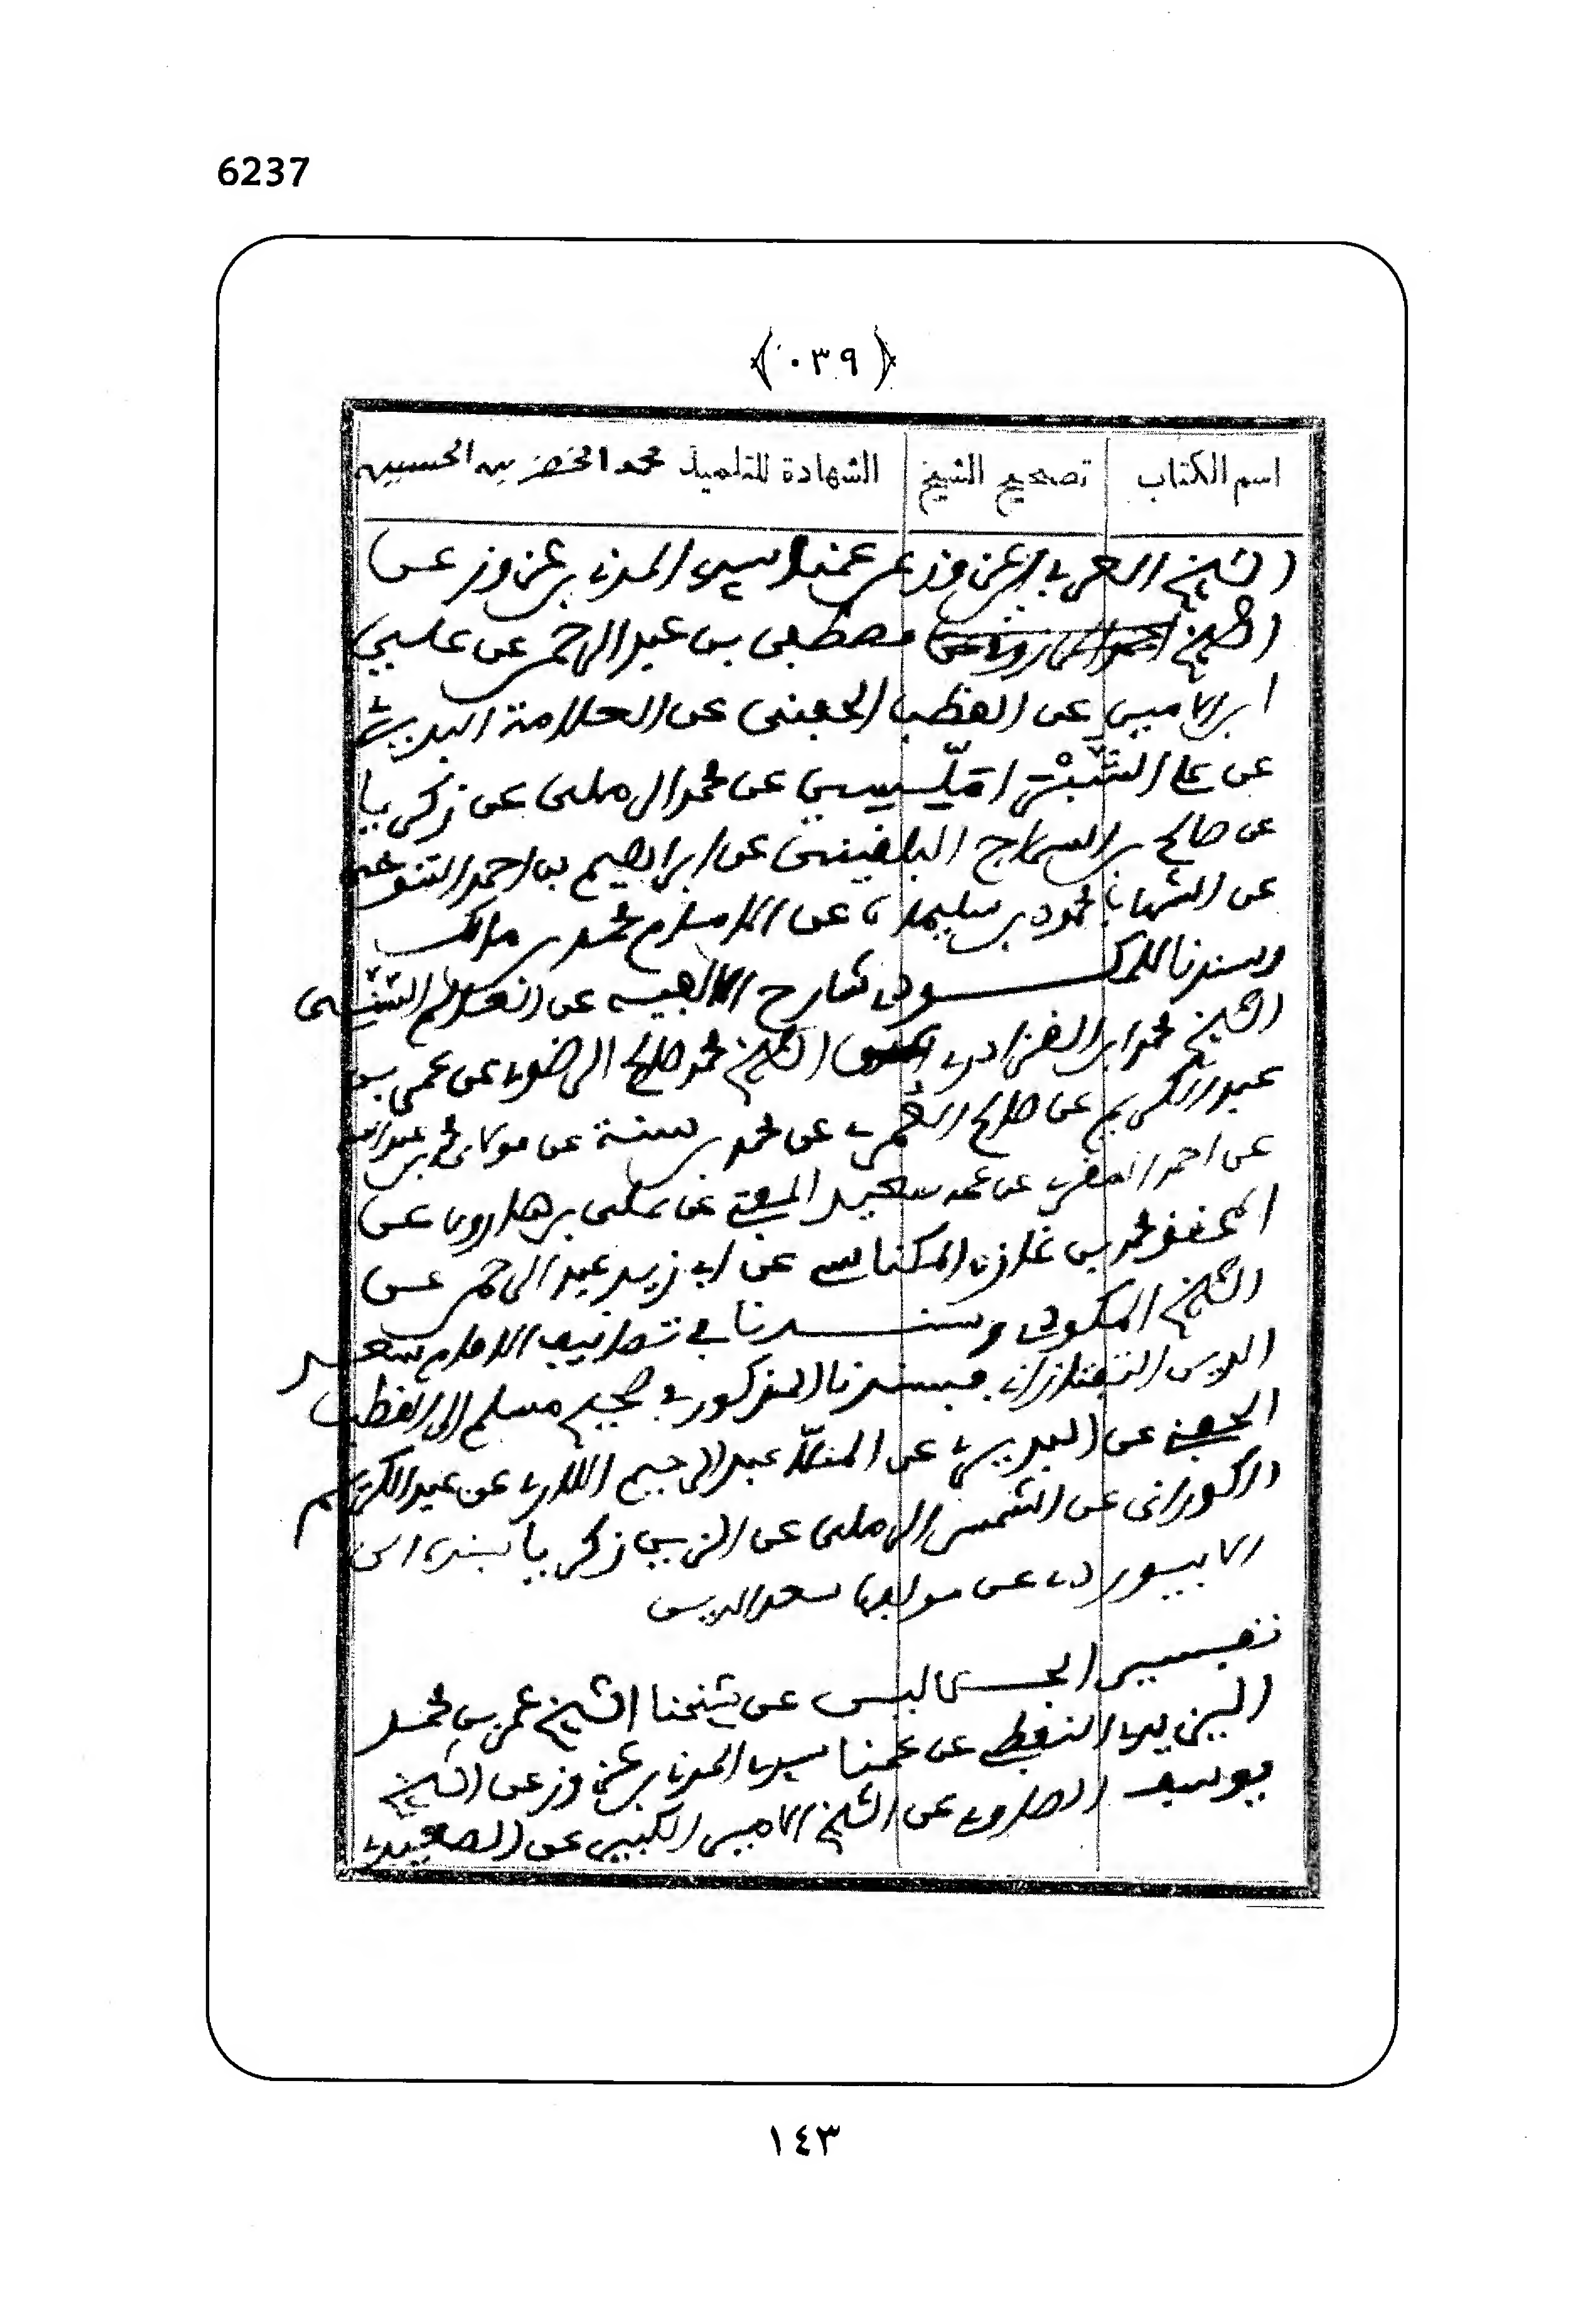 6237
﴿٠٣٩﴾
اسم الكتاب تصحيح الشيخ الشهادة للتلميذ محمد الخضر بن الحسين
الشيخ العربي بن عزوز عن عمنا سيدي المدني بن عزوز عن
الشيخ مصطفى بن عبد الرحمن عن علي
ابن الامين عن القطب الحفني عن العلامة البديري
عن علي الشبراملسي عن محمد الرملي عن زكريا
عن صالح بن السراج البلقيني عن ابراهيم بن احمد التنوخي
عن الشهاب محمود بن سليمان عن الامام محمد بن مالك
وسندنا للمكودي شارح الالفية عن
الشيخ محمد الشيخ محمد صالح الرضوي عن عمر بن
عبد الكريم عن صالح العمري عن محمد بن سنة عن مولاي محمد بن عبد الله
عن احمد المقري عن عمه سعيد المفتي عن علي بن هارون عن
المحقق محمد بن غازي المكناسي عن ابي زيد عبد الرحمن عن
الشيخ المكودي وسندنا في تصانيف الامام سعد
الدين التفتازاني فبسندنا المذكور في صحيح مسلم الى القطب
الحفني عن البديري عن المنلا عبد الرحيم اللاري عن عبد الكريم
الكوراني عن الشمس الرملي عن الزين زكريا بسنده الى
الابيوردي عن مولانا سعد الدين
تفسير الجلالين عن شيخنا الشيخ عمر بن محمد
اليزيدي النفطي عن عمنا سيدي المدني بن عزوز عن الشيخ
يوسف الصاوي عن الشيخ الامير الكبير عن الصعيدي
١٤٣